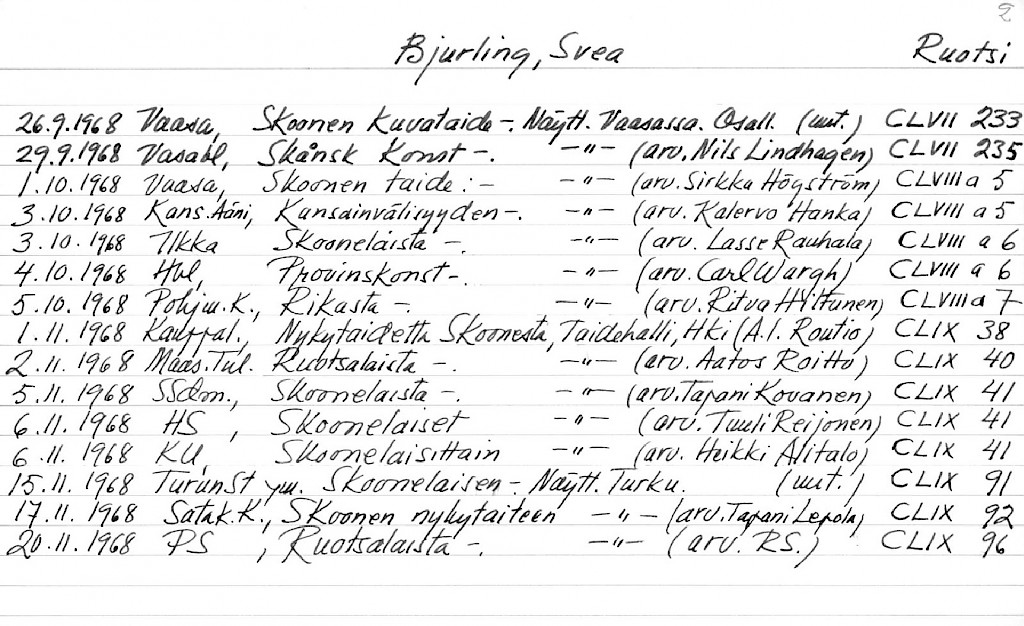 2
Bjurling, Svea Ruotsi
26.9.1968 Vaasa, Skoonen Kuvataide -. Näytt. Vaasassa. Osall. (uut.) CLVII 233
29.9.1968 Vasabl, Skånsk Konst -. -"- (arv. Nils Lindhagen) CLVII 235
1.10.1968 Vaasa, Skoonen taide: - -"- (arv. Sirkka Högström) CLVIII a 5
3.10.1968 Kans. Ääni, Kansainvälisyyden -. -"- (arv. Kalervo Hanka) CLVIII a 5
3.10.1968 Ilkka Skooneläista -. -"- (arv. Lasse Rauhala) CLVIII a 6
4.10.1968 Hbl, Provinskonst -. -"- (arv. Carl Wargh) CLVIII a 6
5.10.1968 Pohjw. K., Rikasta -. -"- (arv. Ritva Hiltunen) CLVIII a 7
1.11.1968 Kauppal., Nykytaidetta Skoonesta, Taidehalli, Hki (A.I. Routio) CLIX 38
2.11.1968 Maas. Tul. Ruotsalaista -. -"- (arv. Aatos Roitto) CLIX 40
5.11.1968 SSdm., Skoonelaista -. -"- (arv. Tapani Kovanen) CLIX 41
6.11.1968 HS, Skoonelaiset -"- (arv. Tuuli Reijonen) CLIX 41
6.11.1968 KU, Skoonelaisittain -"- (arv. Heikki Alitalo) CLIX 41
15.11.1968 TurunSt ym. Skoonelaisen -. Näytt. Turku. (uut.) CLIX 91
17.11.1968 Satak. K., Skoonen nykytaiteen -"- (arv. Tapani Lepola) CLIX 92
20.11.1968 PS, Ruotsalaista -. -"- (arv. RS.) CLIX 96